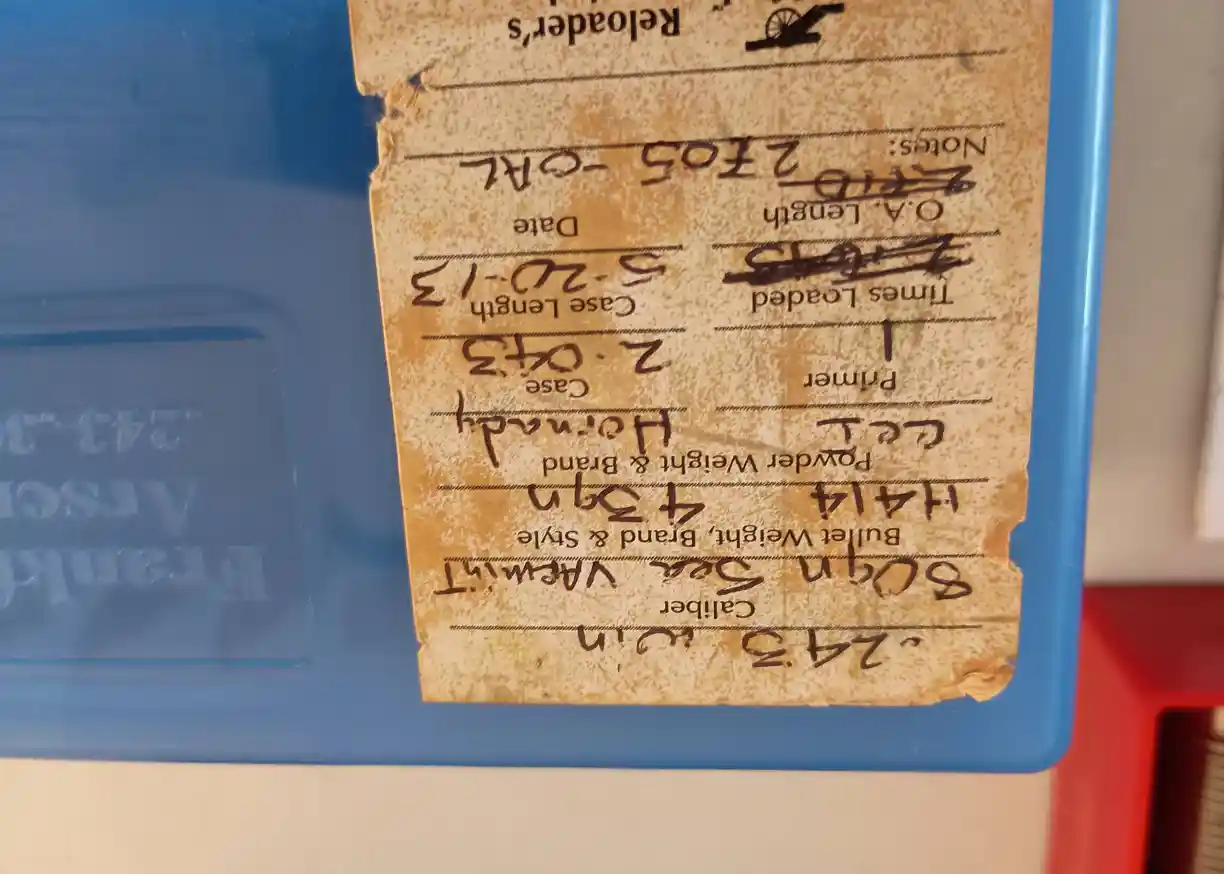 .243 win
Caliber
80gn VArminT
Bullet Weight, Brand & Style
H414 43gn
Powder Weight & Brand
CCI Hornady
Primer Case
1 2.043
Times Loaded Case Length
5-20-13
O.A. Length Date
Notes: 2.705 -OAL
Reloader's
Frankf
Arsen
.243-.30